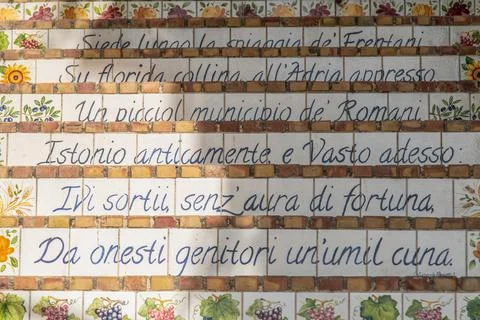 Siede lungo la spiaggia de' Frentani
Su florida collina all'Adria appresso
Un picciol municipio de' Romani,
Istonio anticamente, e Vasto adesso:
Ivi sortii, senz'aura di fortuna,
Da onesti genitori un'umil cuna.